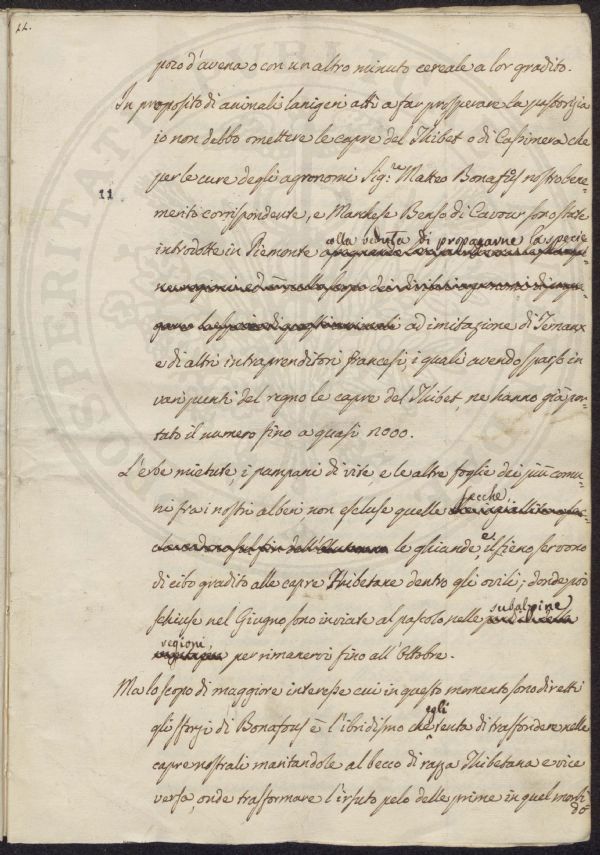 22.
poco d'avena o con un altro minuto cereale a lor gradito.
In proposito di animali lanigeri atti a far prosperare la pastorizia
io non debbo omettere le capre del Thibet o di Cassimera che
per le cure degli agronomi Sig.r Matteo Bonafus nostro bene-
11
merito corrispondente, e Marchese Benso di Cavour sono state
introdotte in Piemonte alla veduta di propagarne la specie
ad imitazione di Ternaux
e di altri intraprenditori francesi, i quali avendo sparso in
varj punti del regno le capre del Thibet, ne hanno già por-
tato il numero fino a quasi 2000.
L'erbe mietute, i pampani di vite e le altre foglie dei più comu-
ni fra i nostri alberi non escluse quelle secche,
le ghiande, e il fieno servono
di cibo gradito alle capre Thibetane dentro gli ovili; donde poi
schiuse nel Giugno sono inviate al pascolo nelle subalpine
regioni, per rimanervi fino all'Ottobre.
Ma lo scopo di maggiore interesse cui in questo momento sono diretti
gli sforzi di Bonafous è l'ibridismo che egli tenta di trasfondere nelle
capre nostrali maritandole al becco di razza Thibetana e vice
versa, onde trasformare l'irsuto pelo delle prime in quel morbi
do